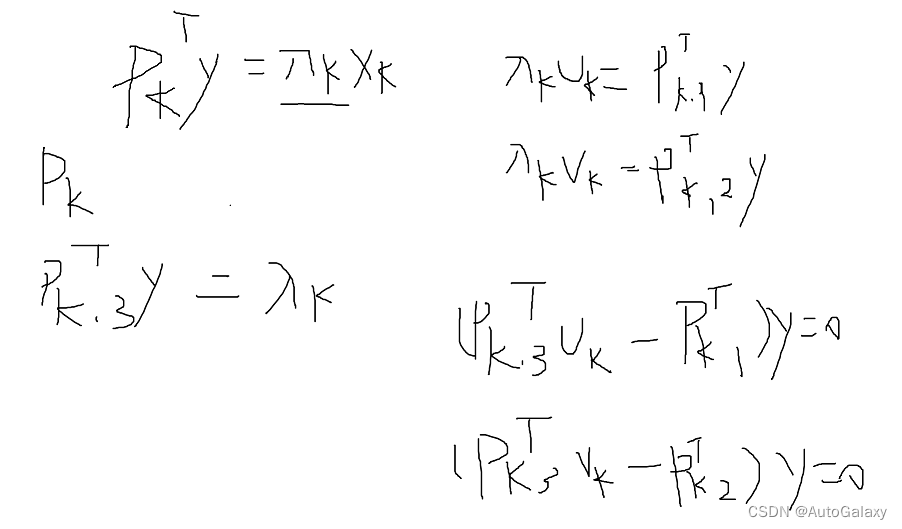 P_k^T y = λ_k x_k
P_k
P_{k.3}^T y = λ_k
λ_k u_k = P_{k.1}^T y
λ_k v_k = P_{k,2}^T y
(P_{k.3}^T u_k − P_{k,1}^T) y = 0
(P_{k,3}^T v_k − P_{k,2}^T) y = 0
CSDN @AutoGalaxy